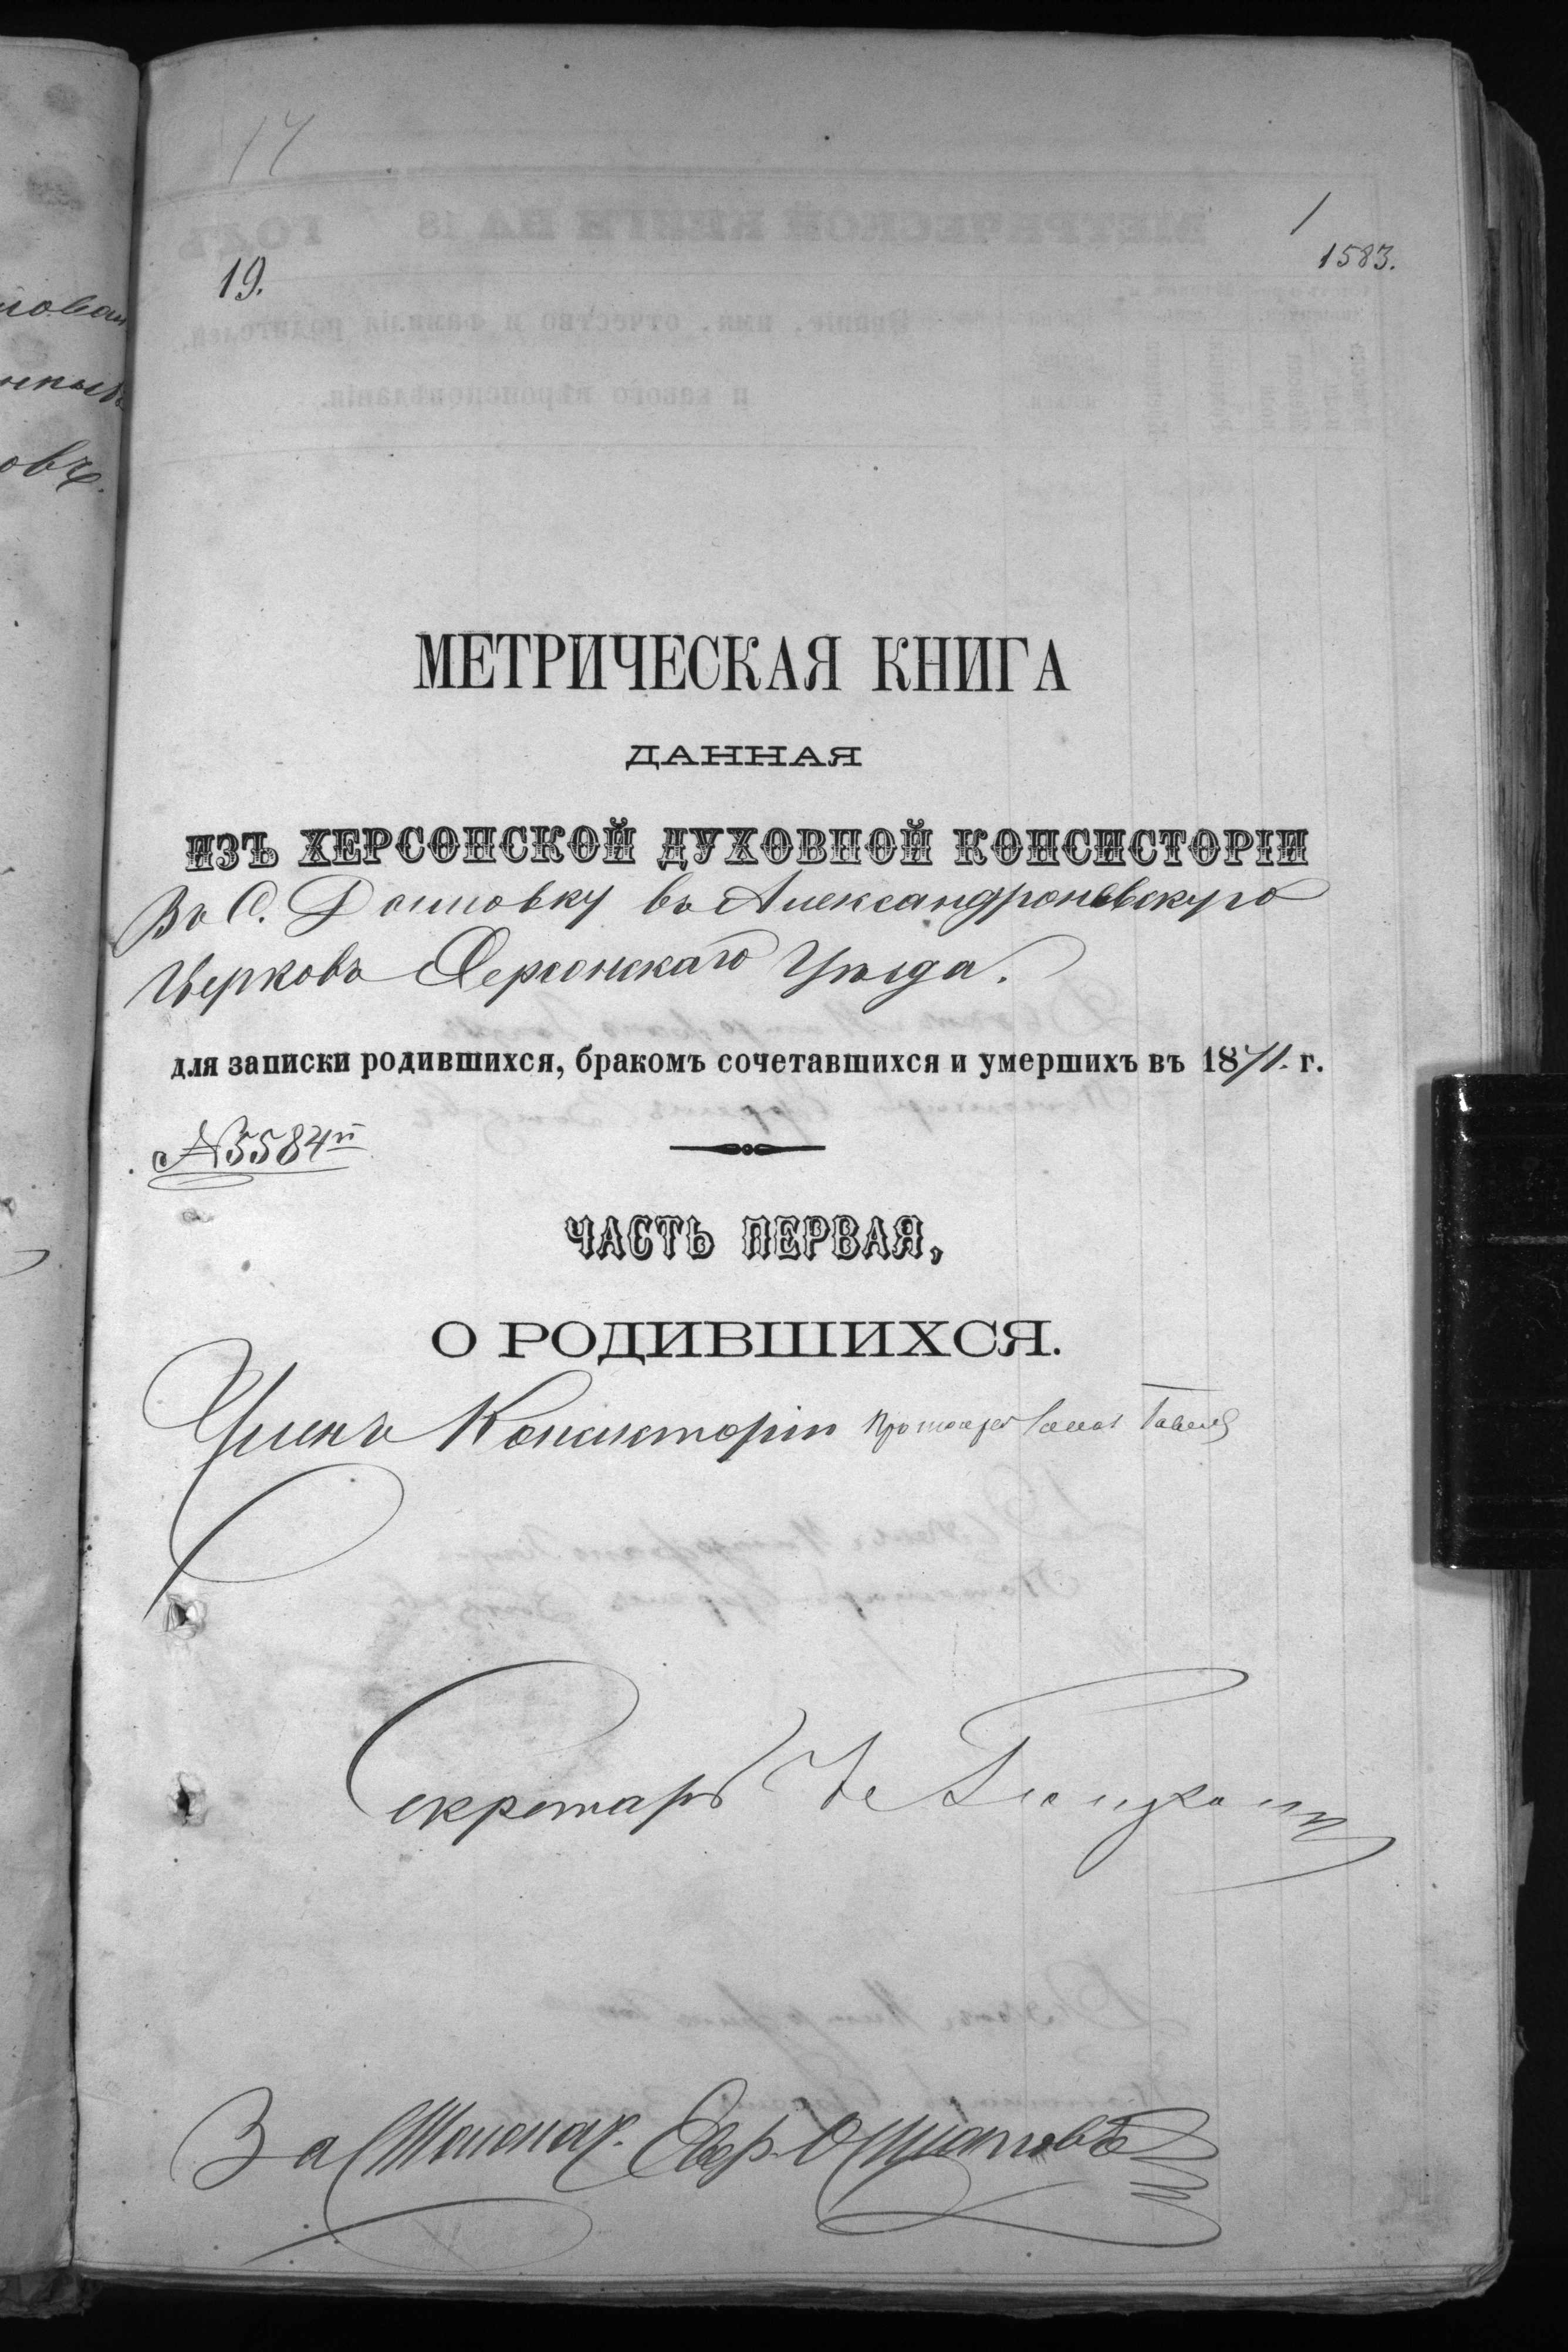 17
1
1583.
19.
МЕТРИЧЕСКАЯ КНИГА
ДАННАЯ
ИЗЪ ХЕРСОНСКОЙ ДУХОВНОЙ КОНСИСТОРІИ
Въ С. въ Александроневскую
Церковь Херсонскаго Уѣзда.
для записки родившихся, бракомъ сочетавшихся и умершихъ въ 1871. г.
№5584й
ЧАСТЬ ПЕРВАЯ,
О РОДИВШИХСЯ.
Членъ Консисторіи Протоіерей
Секретарь
За Столонач.